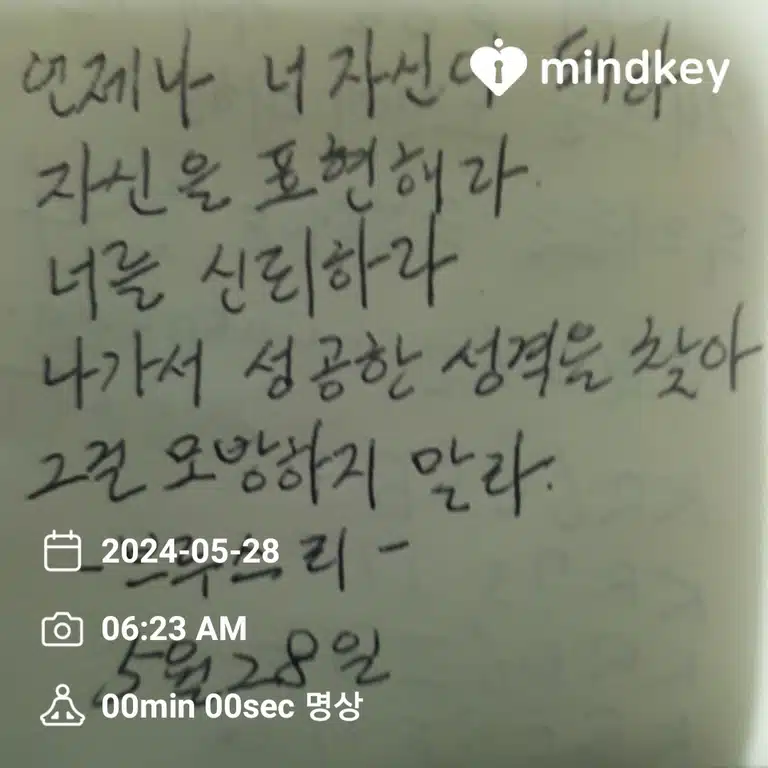 mindkey
언제나 너 자신이 돼라
자신을 표현해라.
너를 신뢰하라
나가서 성공한 성격을 찾아
그걸 모방하지 말라.
-브루스 리-
2024-05-28
06:23 AM
5월 28일
00min 00sec 명상